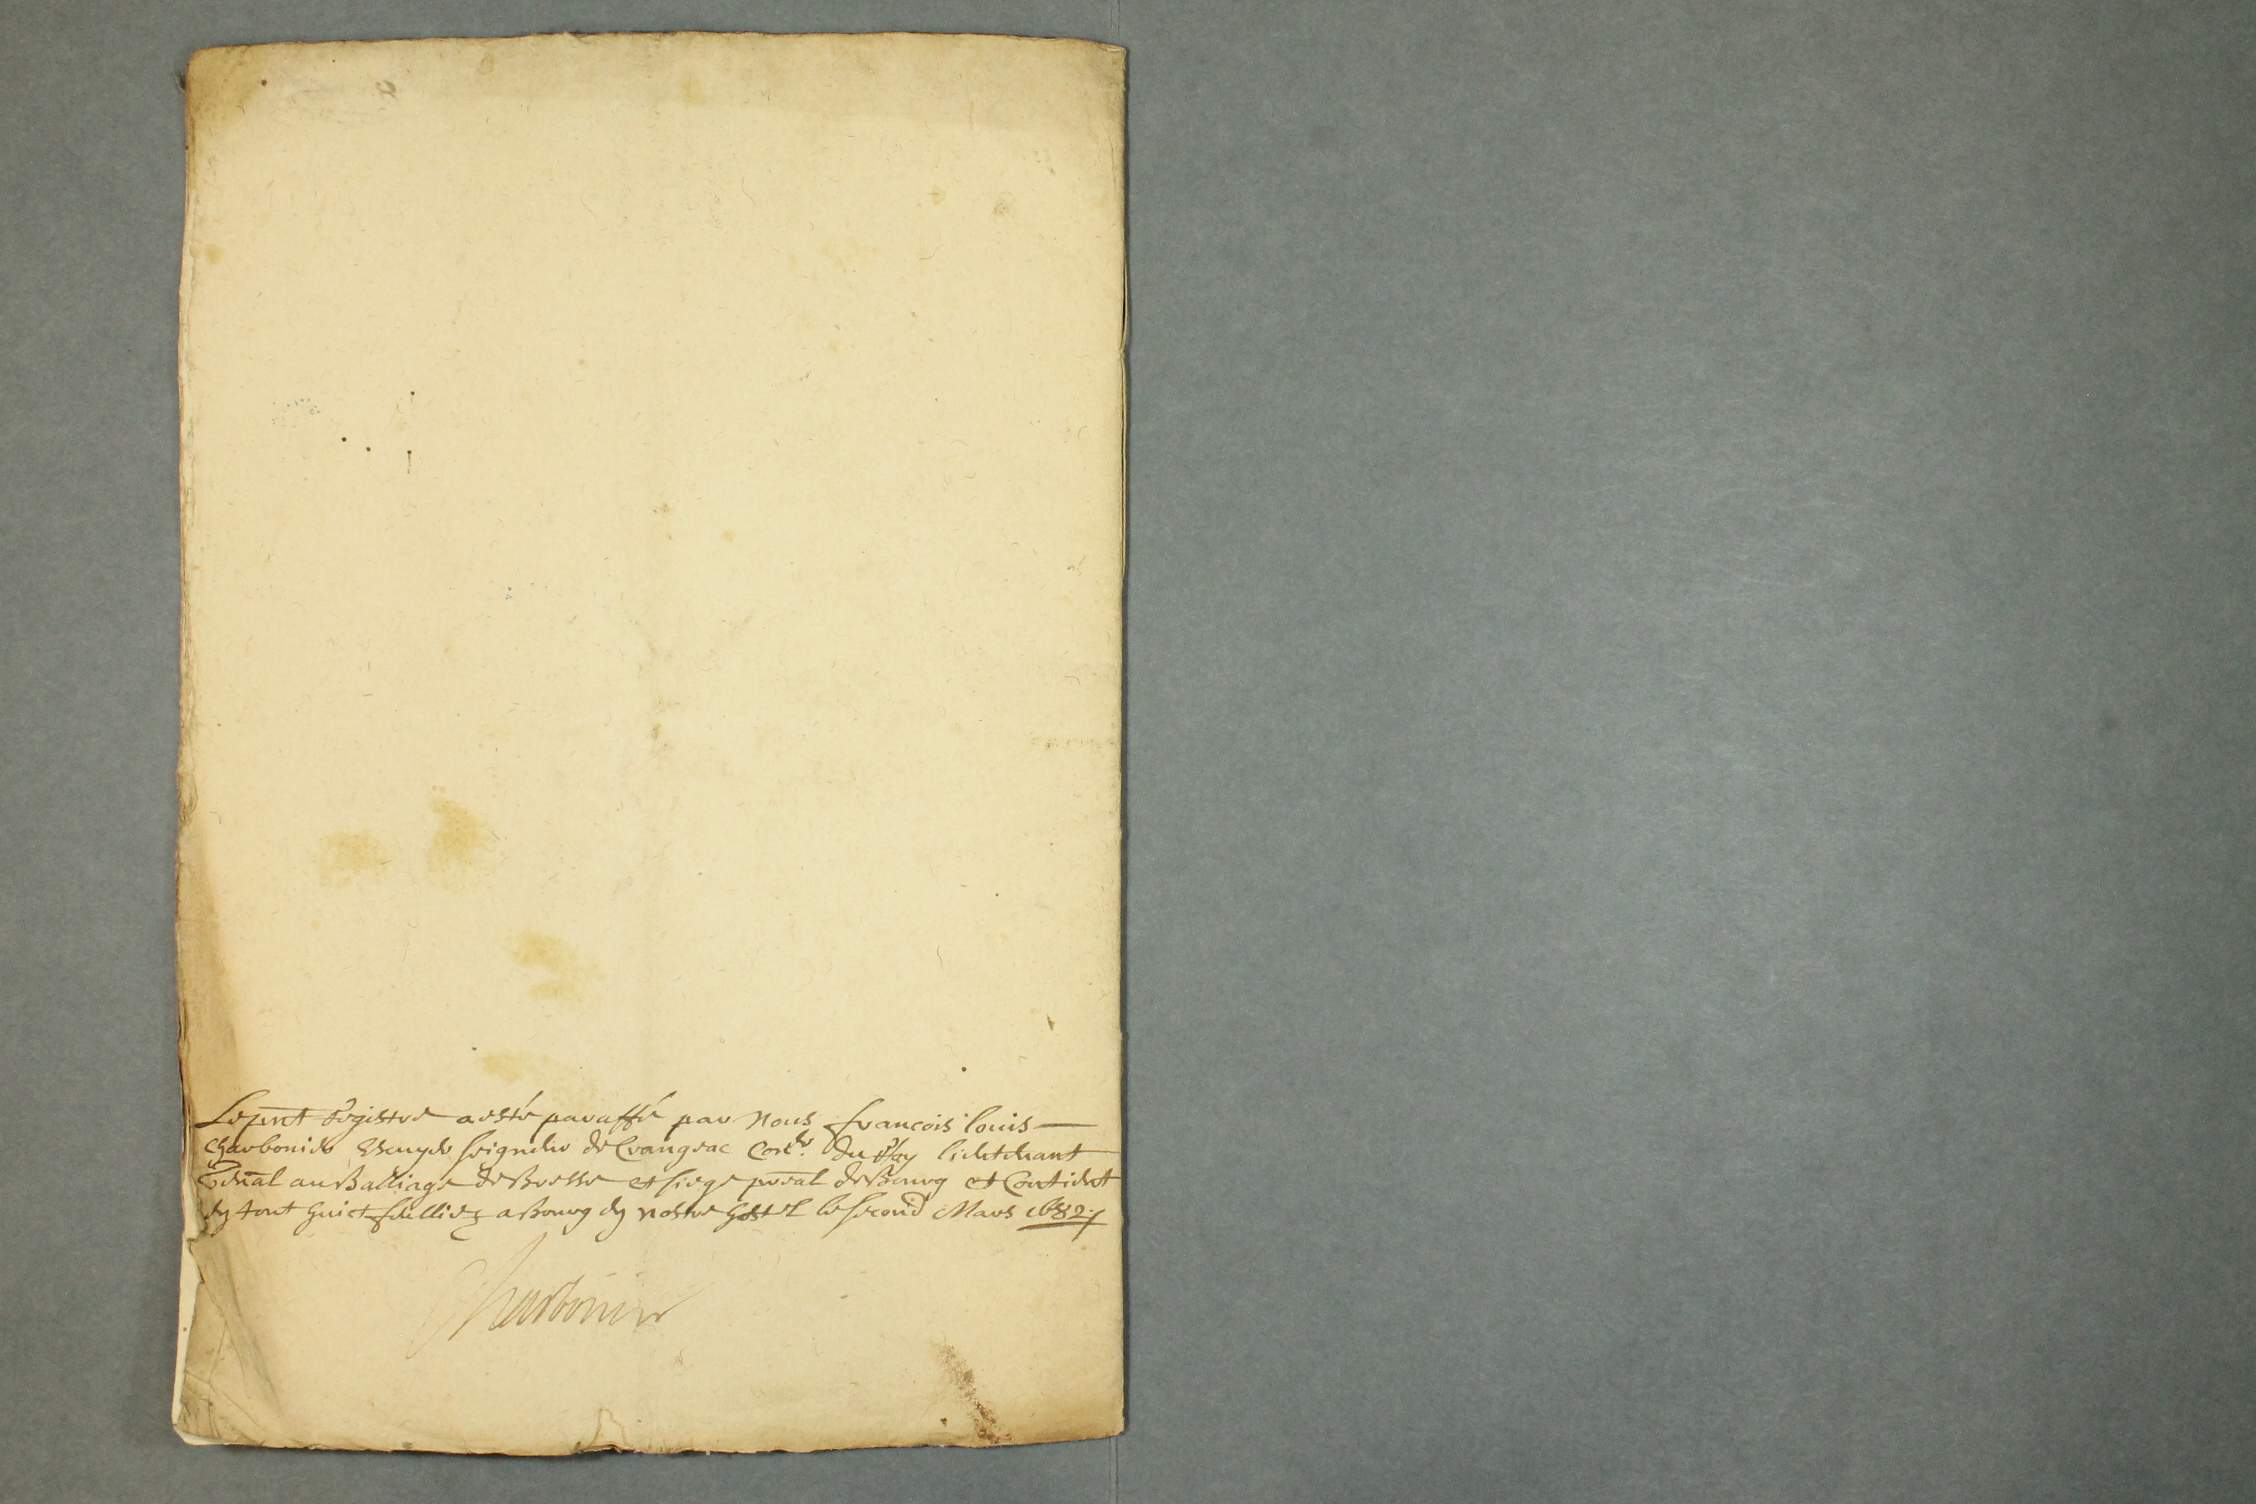 Le pnt Registre a esté paraffé par Nous francois louis
charbonier Escuyer seigneur de Crangeac Coner. du Roy lieutenant
General au Balliage de Bresse et siege preal de Bourg et Contient
en tout huict feulliez a Bourg en nostre hostel le second Mars 1682
Charbonier